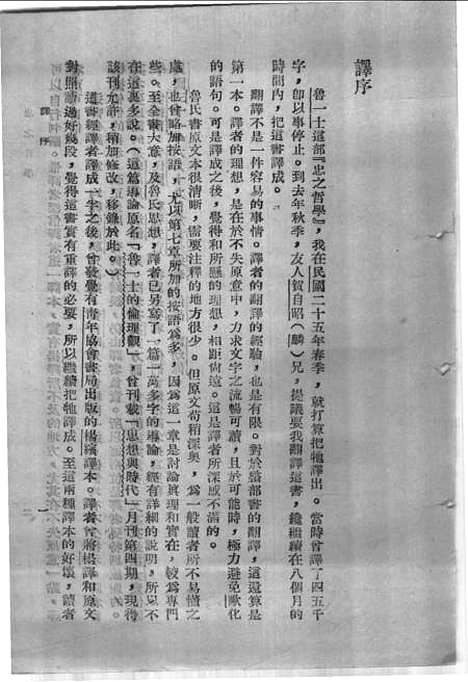 譯序
魯一士這部『忠之哲學』，我在民國二十五年春季，就打算把牠譯出。當時曾譯了四五千
字，卽以事停止。到去年秋季，友人賀自昭（麟）兄，提議要我翻譯這書，纔繼續在八個月的
時間內，把這書譯成。
翻譯不是一件容易的事情。譯者的翻譯的經驗，也是有限。對於整部書的翻譯，這還算是
第一本。譯者的理想，是在於不失原意中，力求文字之流暢可讀，且於可能時，極力避免歐化
的語句。可是譯成之後，覺得和所懸的理想，相距尚遠。這是譯者所深感不滿的。
魯氏書原文本很清晰，需要注釋的地方很少。但原文苟稍深奧，爲一般讀者所不易懂之
處，也曾略加按語，尤以第七章所加的按語爲多，因爲這一章是討論眞理和實在，較爲專門
些。至全書大意，及魯氏思想，譯者已另寫了一篇一萬多字的導論，經有詳細的說明，所以不
在這裏多說。（這篇導論原名『魯一士的倫理觀』，曾刊載『思想與時代』月刊第四期，現得
該刊允許，稍加修改，移錄於此。）
這書經譯者譯成一半之後，曾發覺有靑年協會書局出版的楊縯譯本。譯者曾將楊譯和原文
對照讀過好幾段，覺得這書實有重譯的必要，所以繼續把牠譯成。至這兩種譯本的好壞，讀者
譯序
一